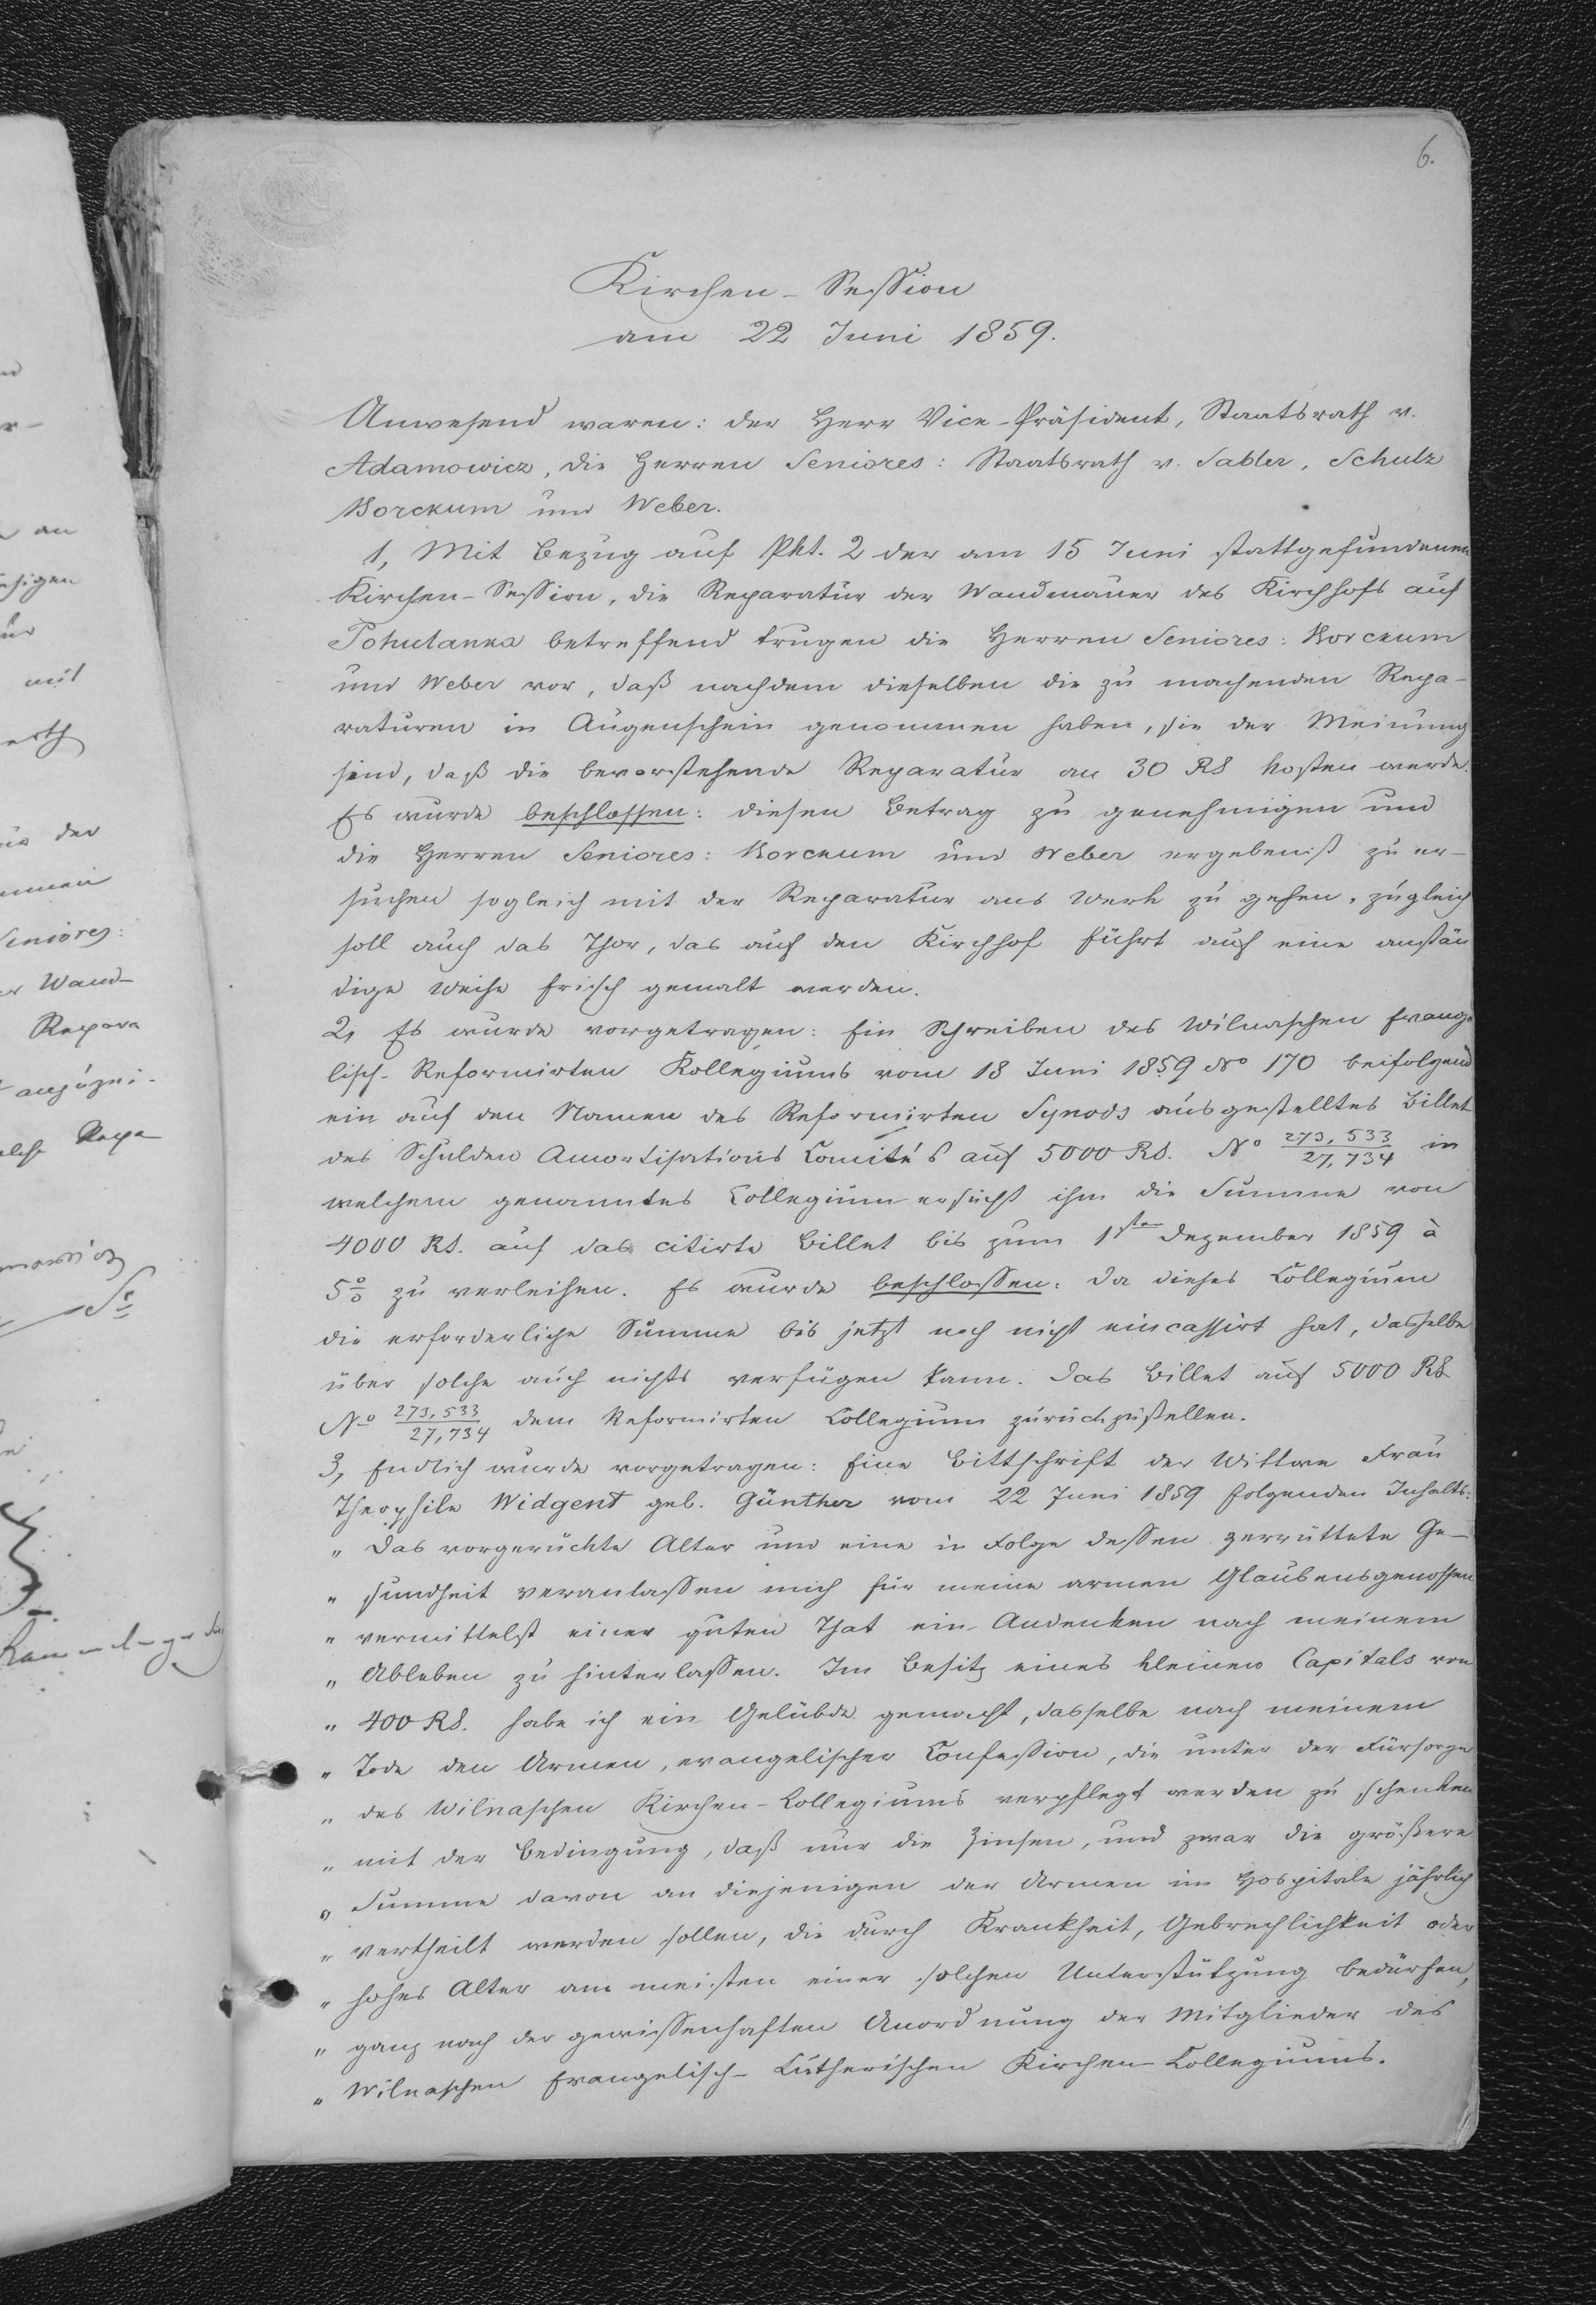 6.
Kirchen-Session
am 22 Juni 1859.
Anwesend waren: der Herr Vice-Präsident, Staatsrath v.
Adamowicz, die Herren Seniores: Staatsrath v. Sabler, Schulz
Korckum und Weber.
1, Mit Bezug auf Pkt. 2 der am 15 Juni stattgefundenen
Kirchen-Session, die Reparatur der Wandmauer des Kirchhofs auf
Pohulanka betreffend trugen die Herren Seniores: Korckum
und Weber vor, daß nachdem dieselben die zu machenden Repa-
raturen in Augenschein genommen haben, sie der Meinung
sind, daß die bevorstehende Reparatur an 30 RS kosten werde.
Es wurde beschlossen: diesen Betrag zu genehmigen und
die Herren Seniores: Korckum und Weber ergebenst zu er-
suchen sogleich mit der Reparatur ans Werk zu gehen, zugleich
soll auch das Thor, das auf den Kirchhof führt auf eine anstän
dige Weise frisch gemalt werden.
2, Es wurde vorgetragen: Ein Schreiben des Wilnaschen Evange
lisch-Reformirten Kollegiums vom 18 Juni 1859 No 170 beifolgend
ein auf den Namen des Reformirten Synods ausgestelltes Billet
des Schulden Amortisations Comité's auf 5000 RS. No 273,533/27,734 in
welchem genanntes Collegium ersucht ihm die Summe von
4000 RS. auf das citirte Billet bis zum 1sten Dezember 1859 à
5% zu verleihen. Es wurde beschlossen: da dieses Collegium
die erforderliche Summe bis jetzt noch nicht eincassirt hat, dasselbe
über solche auch nichts verfügen kann. Das Billet auf 5000 RS
No 273,533/27,734 dem Reformirten Collegium zurückzustellen.
3, Endlich wurde vorgetragen: Eine Bittschrift der Wittwe Frau
Theophile Widgent geb. Günther vom 22 Juni 1859 folgenden Inhalts:
„ Das vorgerückte Alter und eine in Folge dessen zerrüttete Ge-
„ sundheit veranlassen mich für meine armen Glaubensgenossen
„ vermittelst einer guten That ein Andenken nach meinem
„ Ableben zu hinterlassen. Im Besitz eines kleinen Capitals von
„ 400 RS. habe ich ein Gelübde gemacht, dasselbe nach meinem
„ Tode den Armen, evangelischer Confession, die unter der Fürsorge
„ des Wilnaschen Kirchen-Collegiums verpflegt werden zu schenken
„ mit der Bedingung, daß nur die Zinsen, und zwar die größere
„ Summe davon an diejenigen der Armen im Hospitale jährlich
„ vertheilt werden sollen, die durch Krankheit, Gebrechlichkeit oder
„ hohes Alter am meisten einer solchen Unterstützung bedürfen,
„ ganz nach der gewissenhaften Anordnung der Mitglieder des
„ Wilnaschen Evangelisch-Lutherischen Kirchen-Collegiums.